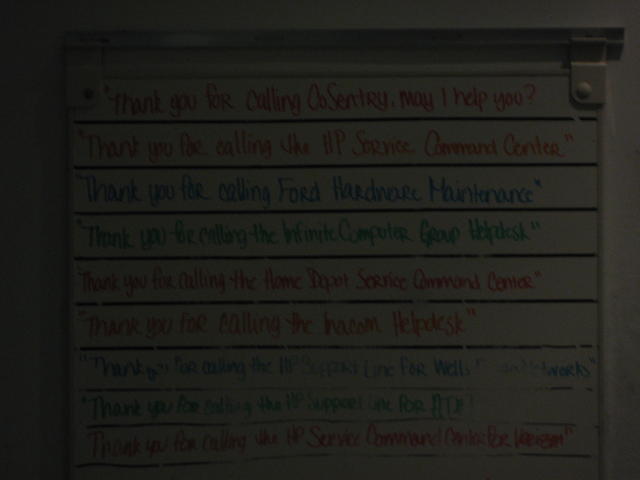 "Thank you for calling CoSentry, may I help you?
"Thank you for calling the HP Service Command Center"
"Thank you for calling Ford Hardware Maintenance"
"Thank you for calling the Infinite Computer Group Helpdesk"
Thank you for calling the Home Depot Service Command Center"
"Thank you for calling the Inacom Helpdesk"
"Thank for calling the HP Support Line for Wells
"Thank you for calling the HP Support Line for
Thank you for calling the HP Service Command Center for Verizon"